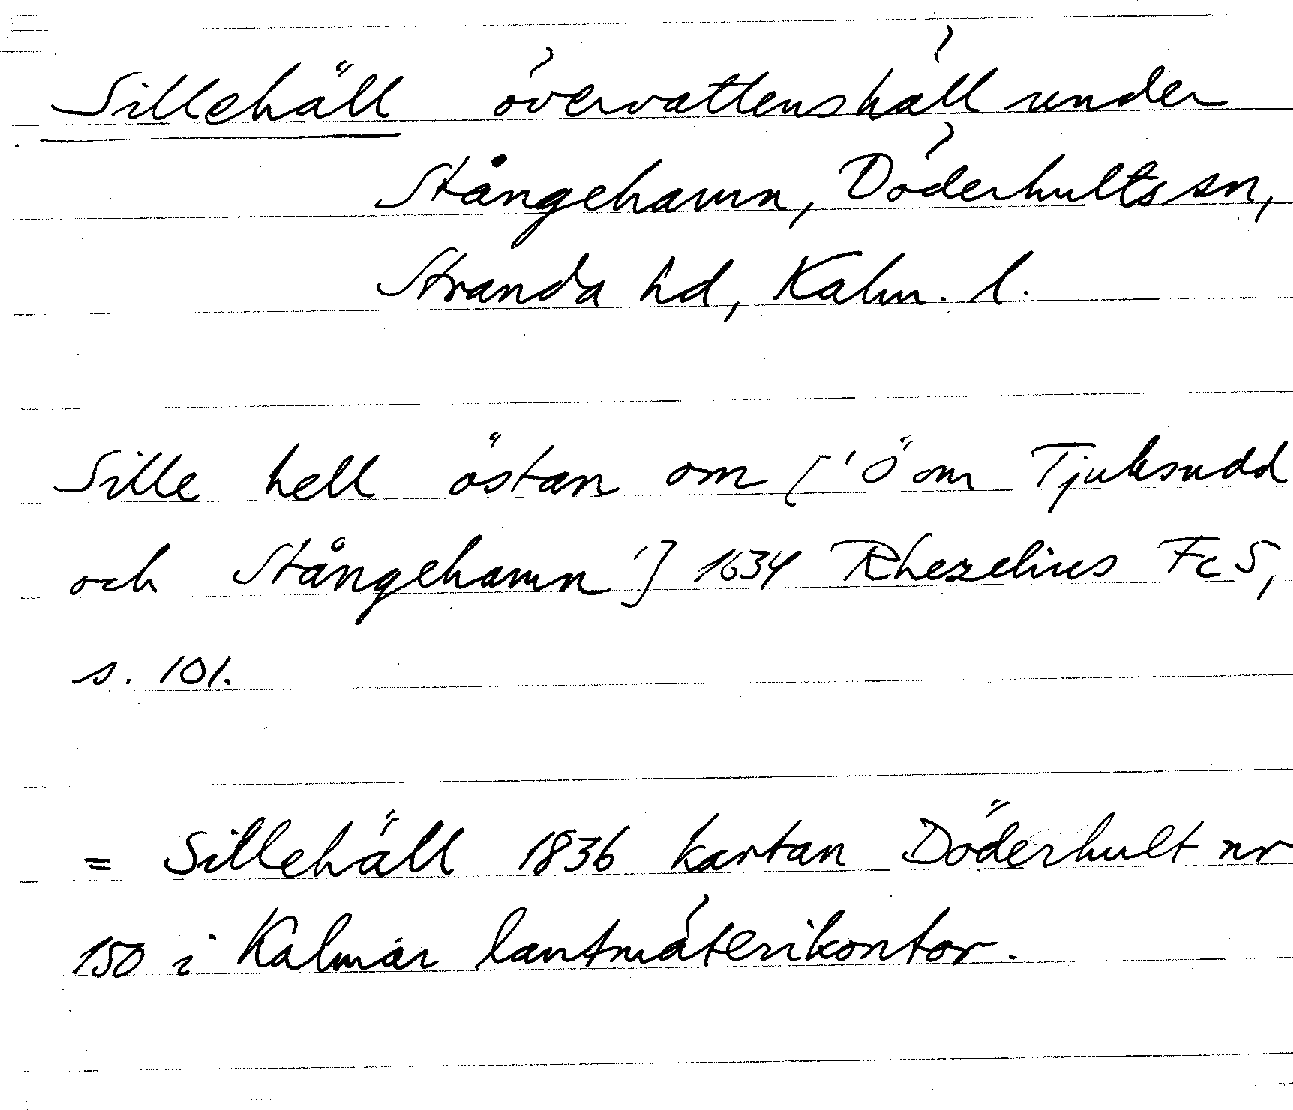 Sillehäll övervattenshäll under
Stångehamn, Döderhults sn,
Stranda hd, Kalm. l.
Sille hell östan om ['ö om Tjuksudd
och Stångehamn'] 1634 Rhezelius Fc 5,
s. 101.
= Sillehäll 1836 kartan Döderhult nr
150 i Kalmar lantmäterikontor.